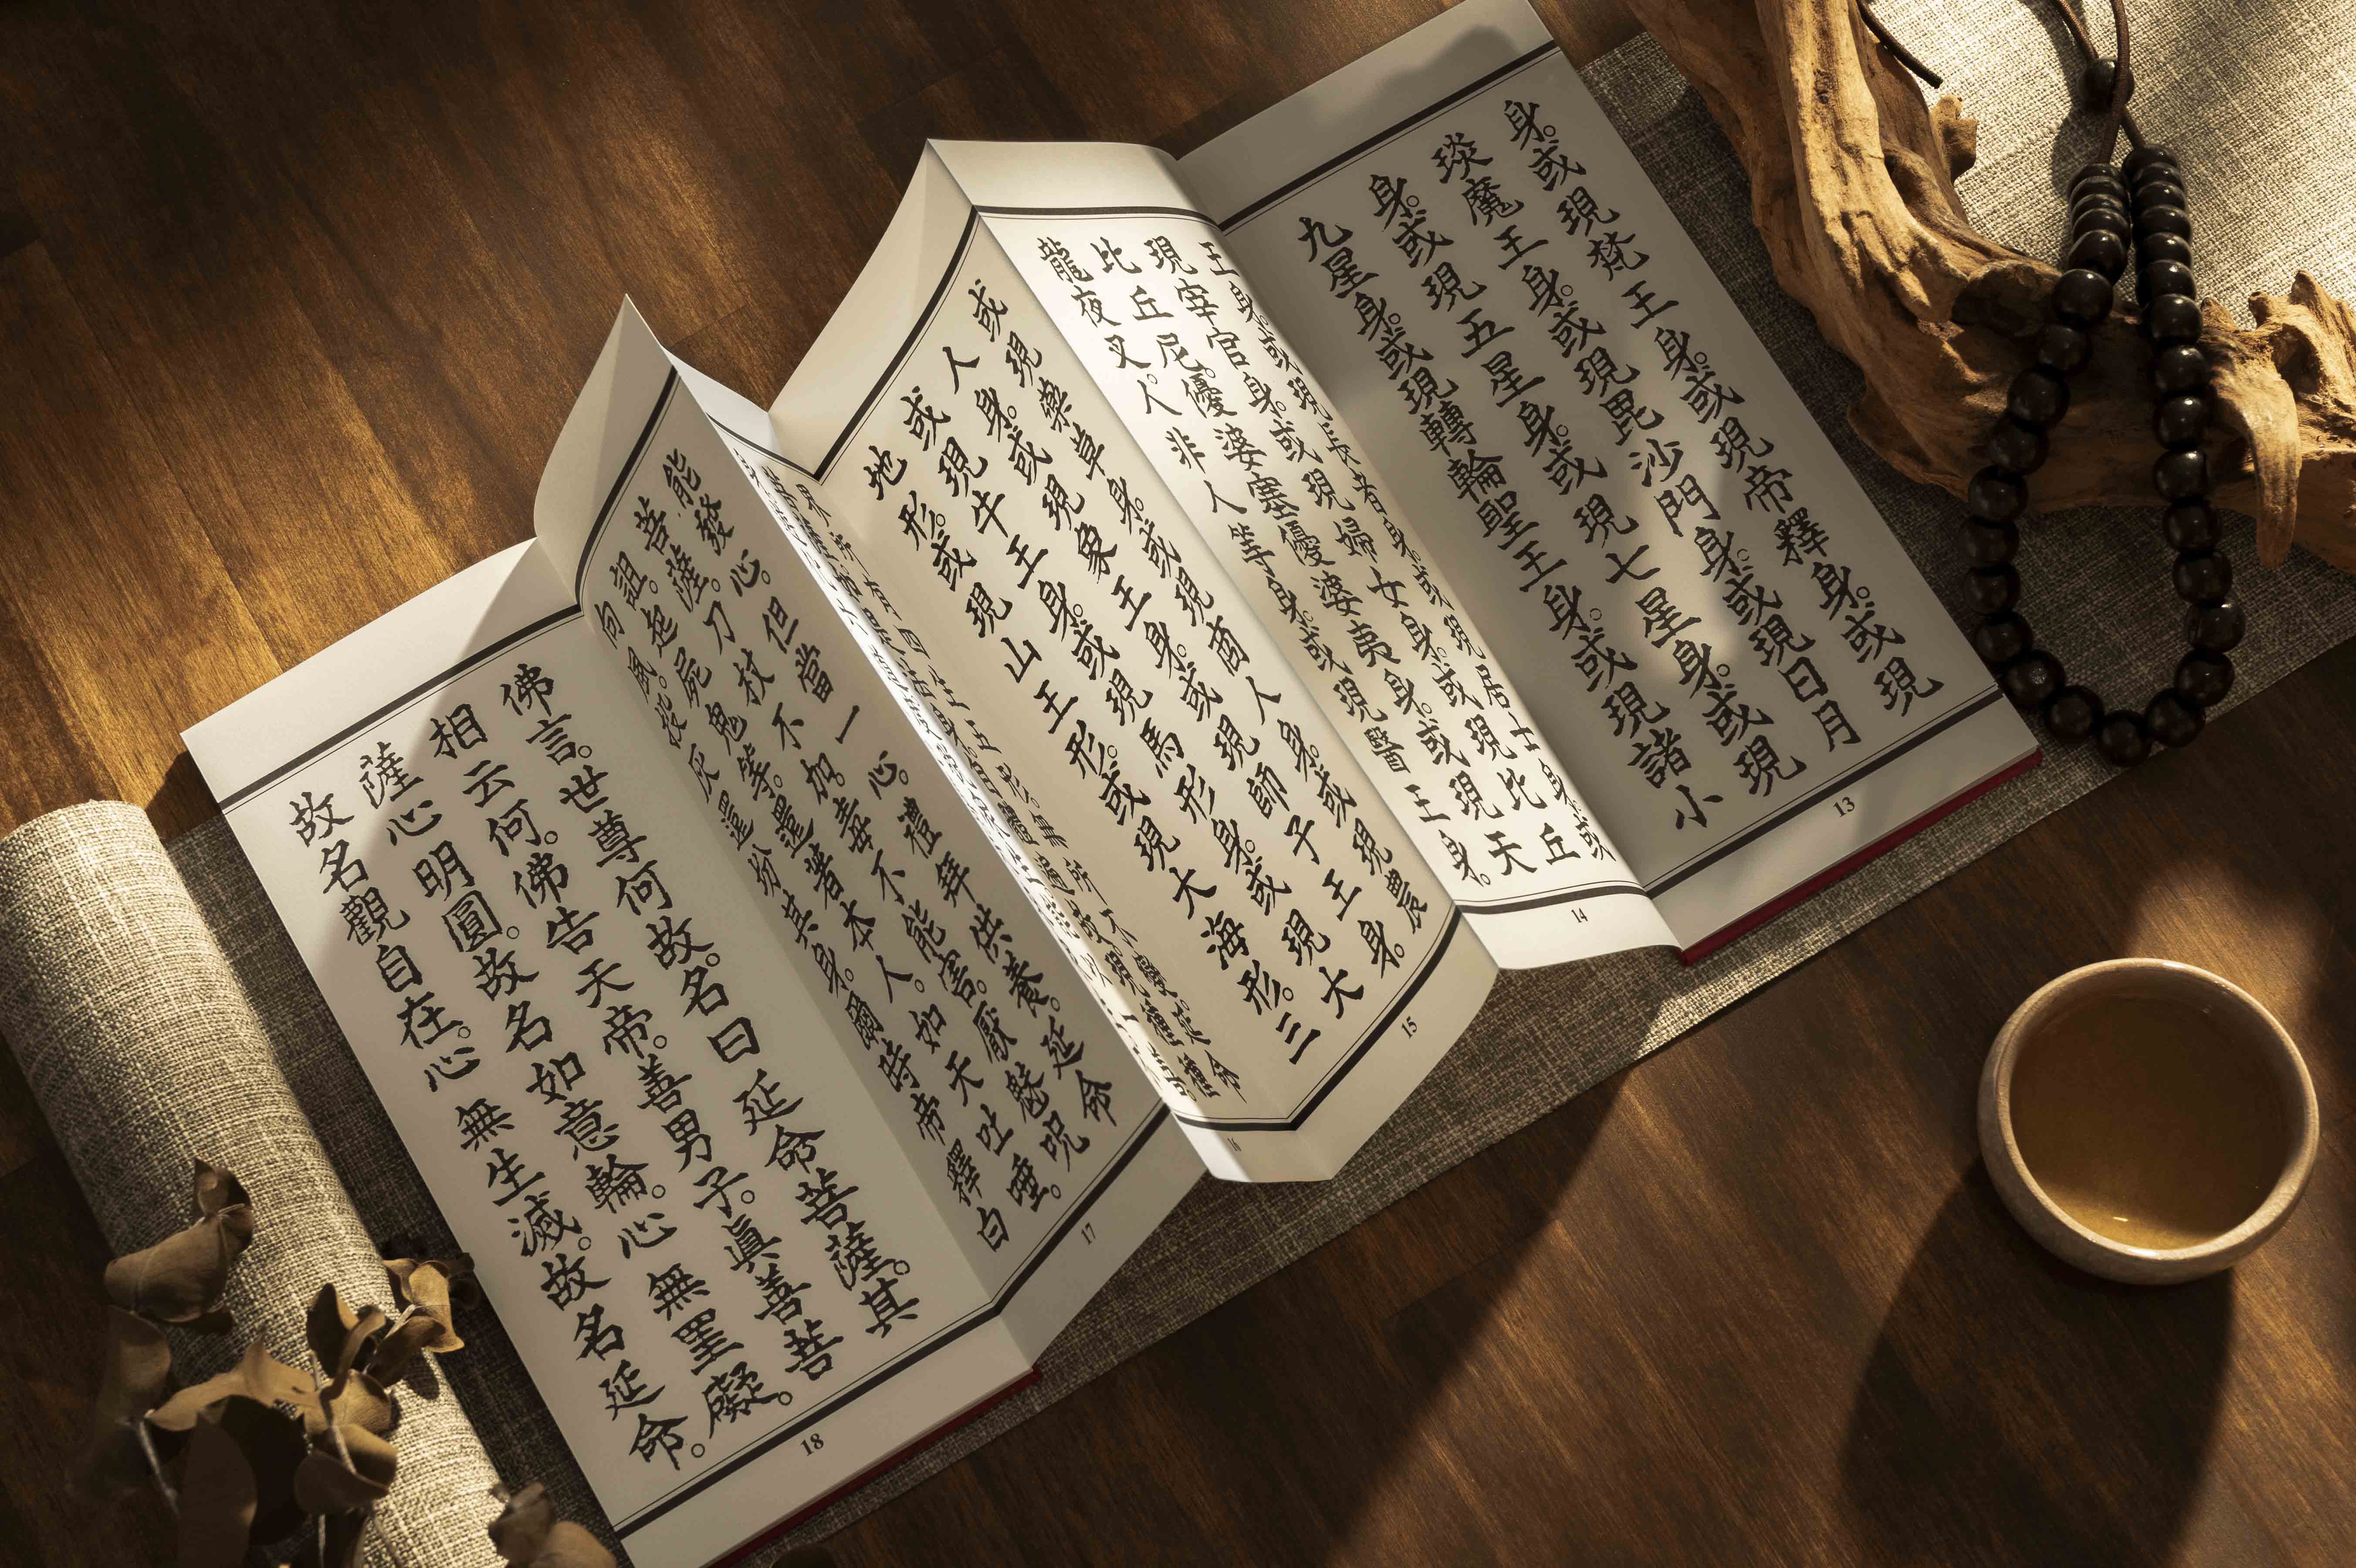 身。或現梵王身。或現帝釋身。或現
琰魔王身。或現毘沙門身。或現日月
身。或現五星身。或現七星身。或現
九星身。或現轉輪聖王身。或現諸小
13
王身。或現長者身。或現居士身。或
現宰官身。或現婦女身。或現比丘
比丘尼。優婆塞優婆夷身。或現天
龍夜叉。人非人等身。或現醫王身。
14
或現藥草身。或現商人身。或現農
人身。或現象王身。或現師子王身。
或現牛王身。或現馬形身。或現大
地形。或現山王形。或現大海形。三
15
16
能發心。但當一心。禮拜供養。延命
菩薩。刀杖不加。毒不能害。厭魅呪
詛。起屍鬼等。還著本人。如天吐唾。
向風。投灰還坋其身。爾時帝釋白
17
佛言。世尊何故。名曰延命菩薩。其
相云何。佛告天帝。善男子。眞善菩
薩心明圓。故名如意輪。心無罣礙。
故名觀自在。心無生滅。故名延命。
18